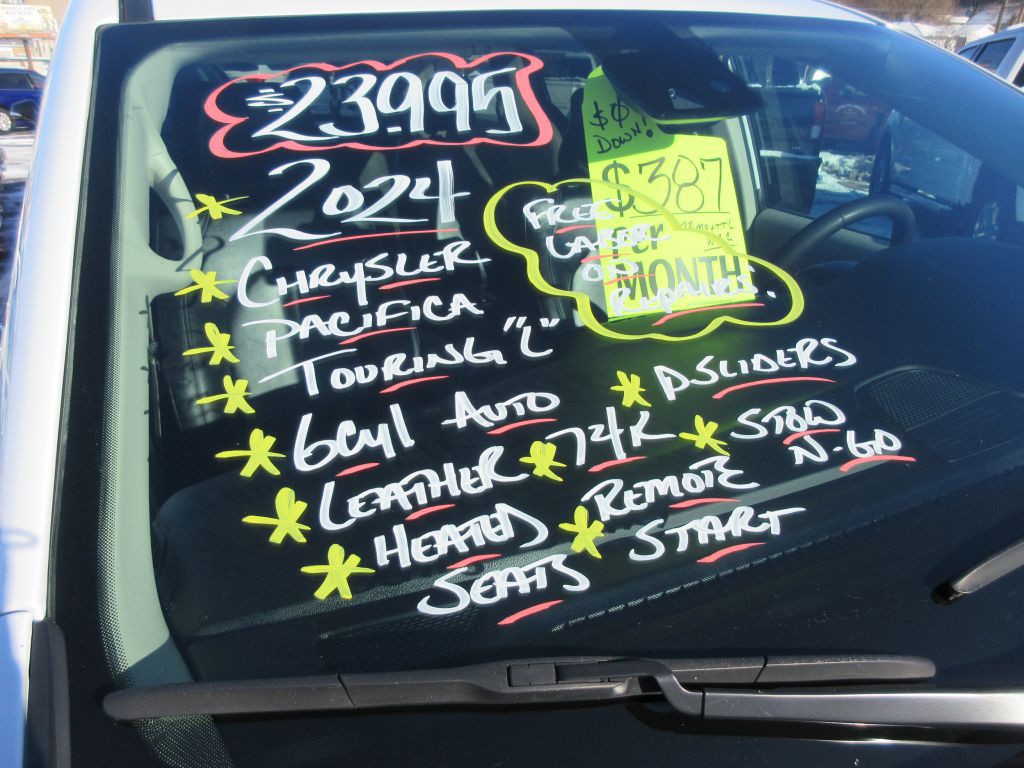 $23995
2024
CHRYSLER
PACIFICA
TOURING "L"
6Cyl AUTO
LEATHER
HEATED
SEATS
$0
DOWN!
$387
MONTH
FREE
LABER
ON
REPAIRS.
PSLIDERS
74K
STOW
N-GO
REMOTE
START